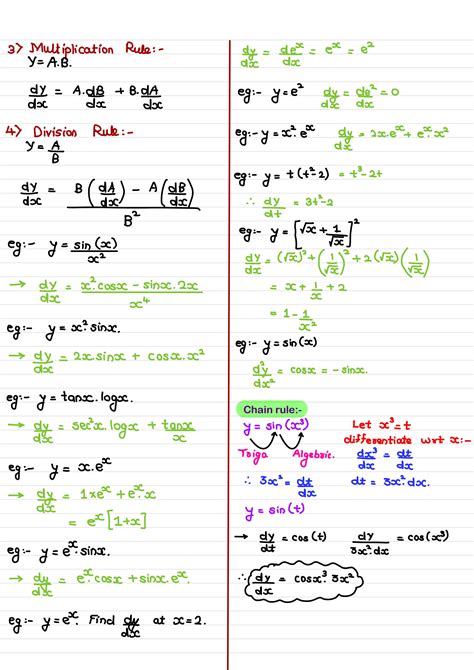 3> Multiplication Rule:-
Y = A.B.
dy/dx = A.dB/dx + B.dA/dx
4> Division Rule:-
Y = A/B
dy/dx = B(dA/dx) - A(dB/dx) / B²
eg:- y = sin(x)/x²
→ dy/dx = x².cosx - sinx.2x / x⁴
eg:- y = x².sinx.
→ dy/dx = 2x.sinx + cosx.x²
eg:- y = tanx.logx.
→ dy/dx = sec²x.logx + tanx/x
eg:- y = x.eˣ
→ dy/dx = 1×eˣ + eˣ.x
= eˣ[1+x]
eg:- y = eˣ.sinx.
→ dy/dx = eˣ.cosx + sinx.eˣ.
eg:- y = eˣ. Find dy/dx at x=2.
dy/dx = deˣ/dx = eˣ = e²
eg:- y = e² dy/dx = de²/dx = 0
eg:- y = x².eˣ dy/dx = 2x.eˣ + eˣ.x²
eg:- y = t(t²-2) = t³-2t
∴ dy/dt = 3t²-2
eg:- y = [√x + 1/√x]²
dy/dx = (√x)² + (1/√x)² + 2(√x)(1/√x)
= x + 1/x + 2
= 1 - 1/x²
eg:- y = sin(x)
d²y/dx² = cosx = -sinx.
Chain rule:-
y = sin(x³)
Trigo Algebric.
Let x³=t
differentiate wrt x:-
dx³/dx = dt/dx
∴ 3x² = dt/dx dt = 3x²dx.
y = sin(t)
→ dy/dt = cos(t) dy/3x².dx = cos(x³)
∴ dy/dx = cosx³.3x²